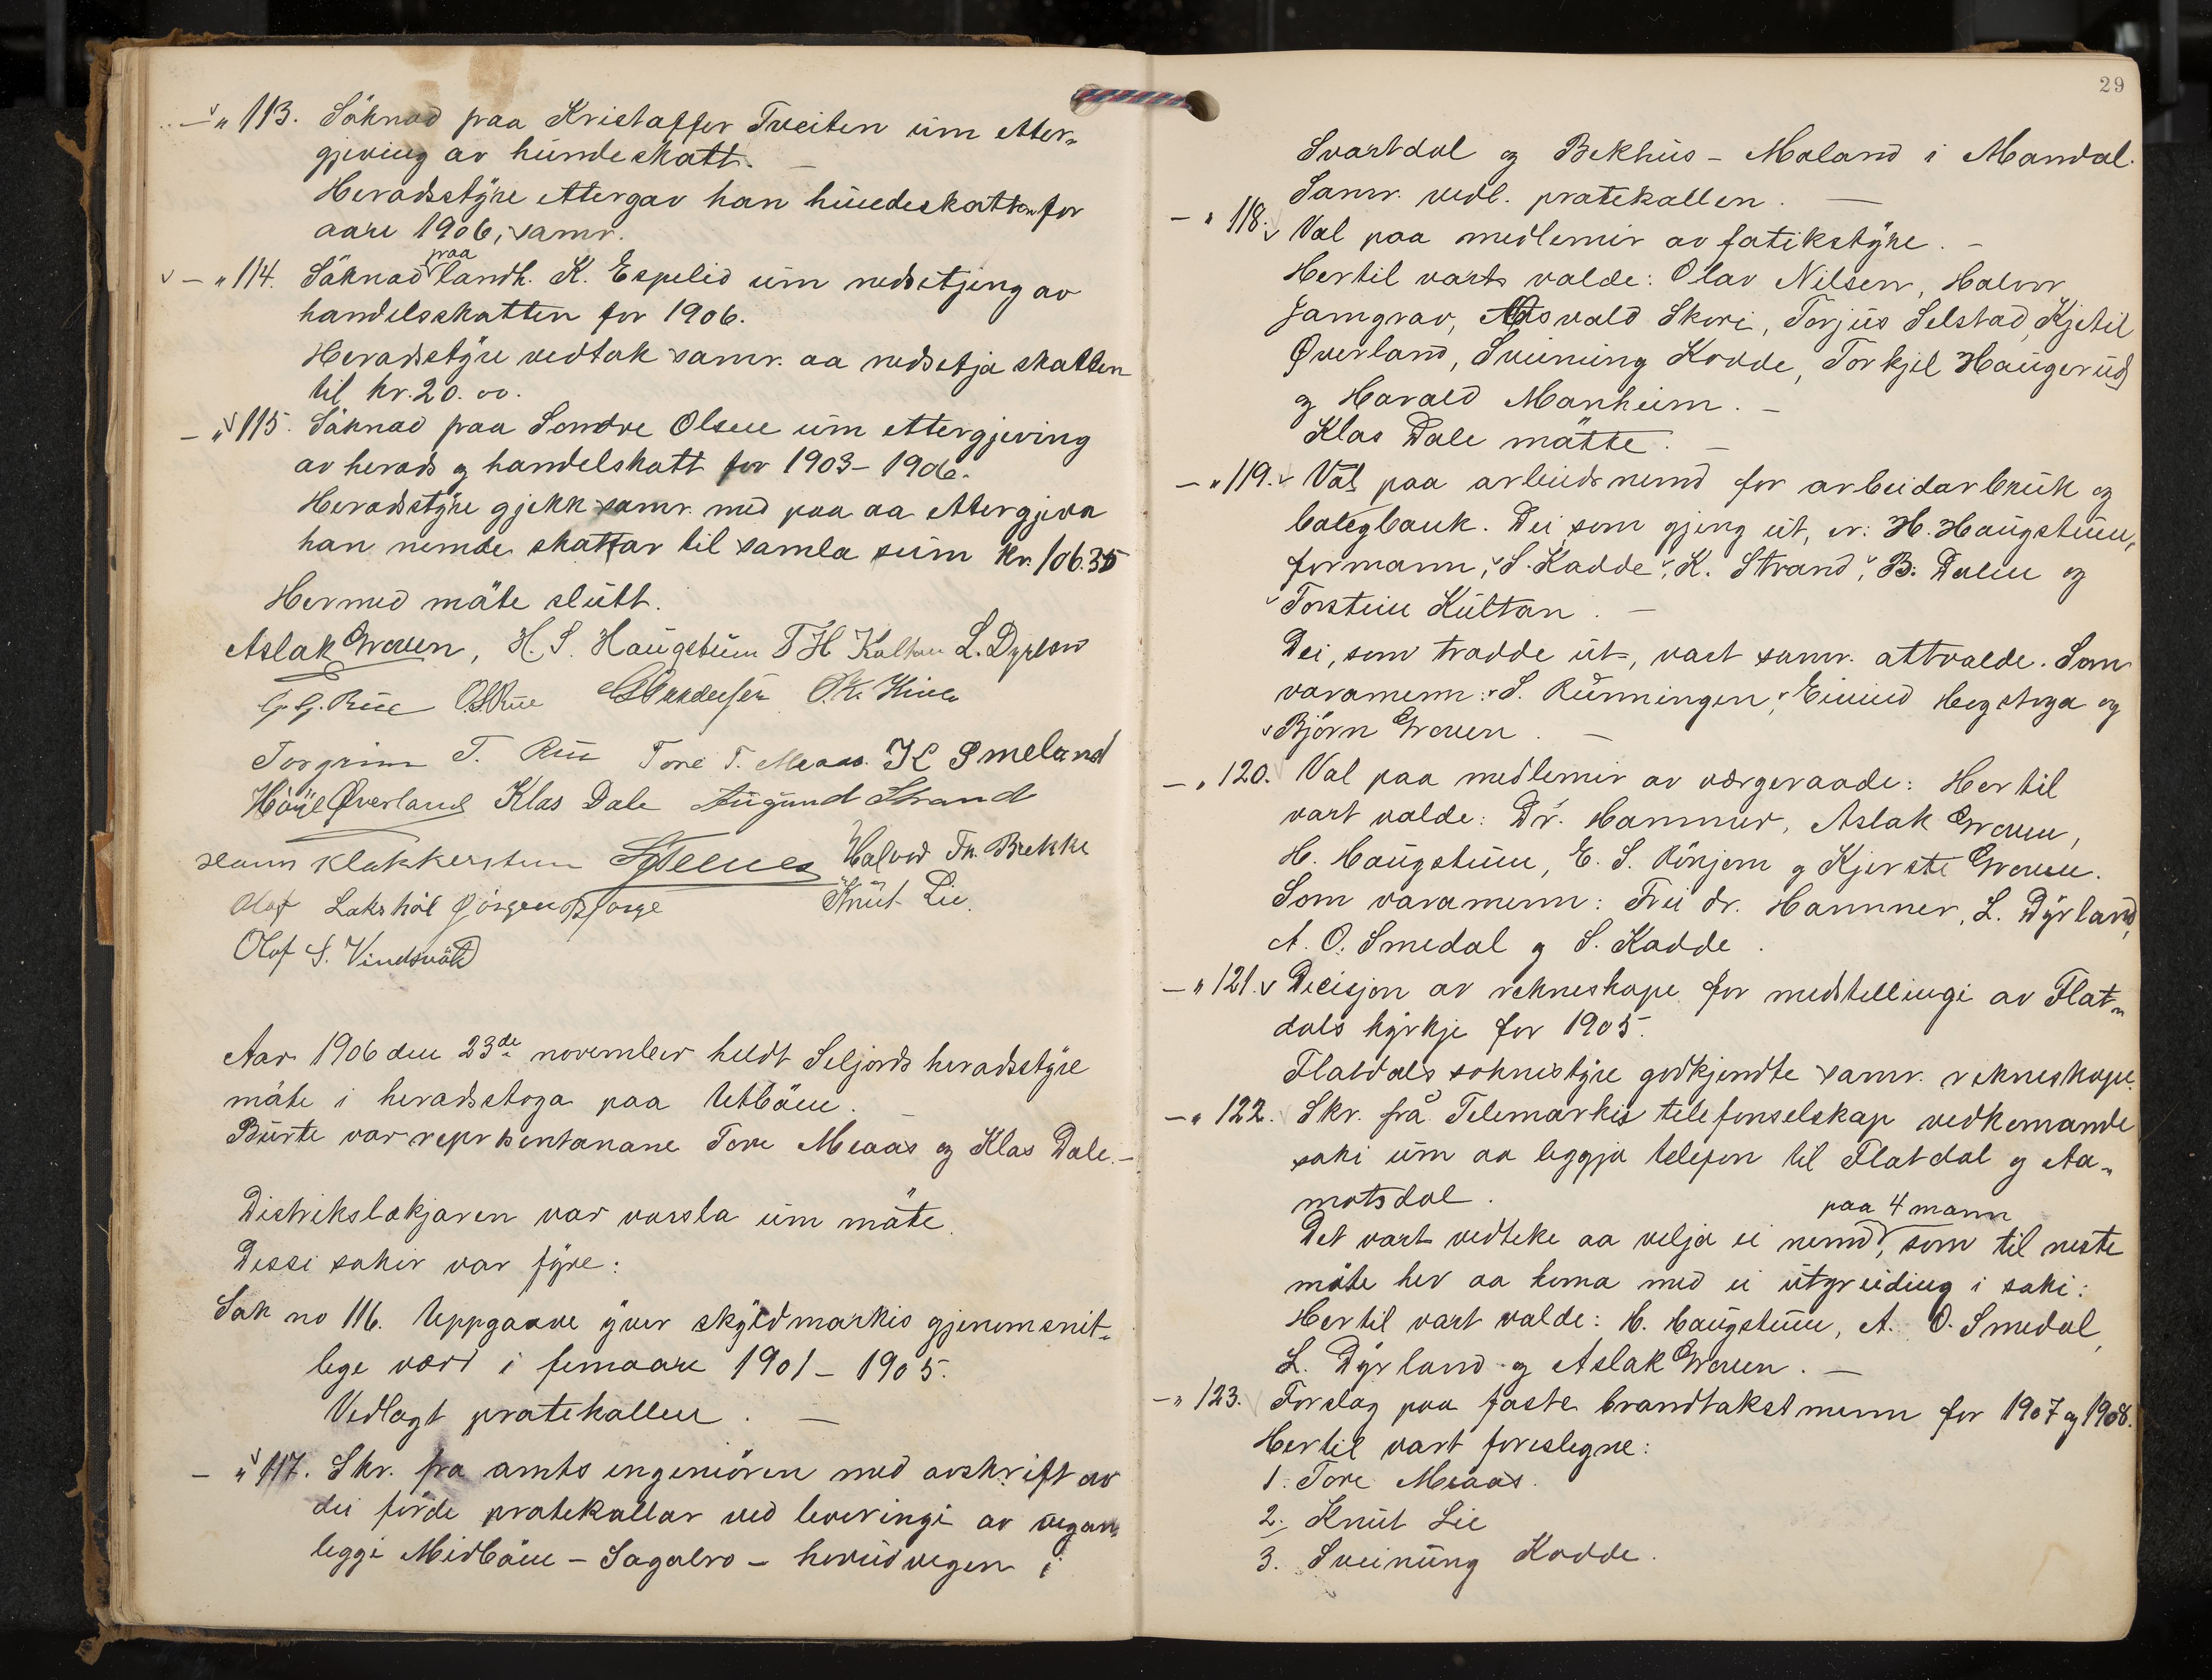 — " 113. Söknad paa Kristaffer Tveiten um etter-
gjeving av hundeskatt. —
Heradsstyre ettergav han hundeskatten for
aare 1906, samr.
— " 114. Söknad paa landh. K. Espelid um nedsetjing av
handelsskatten for 1906.
Heradsstyre vedtok samr. aa nedsetja skatten
til kr. 20.00.
— " 115. Söknad paa Sondre Olsen um ettergjeving
av herads og handelskatt for 1903–1906.
Heradsstyre gjekk samr. med paa aa ettergjeva
han nemde skattar til samla sum kr. 106.35
Hermed möte slutt.
Aslak Groven, H. S. Haugstuen T H Kultan L. Dyrland
G. G. Rue O.S.Rue O. K.
Torgrim T. Rue Tore T. Meaas. K Smeland
Höye Øverland Klas Dale Augund Strand
Klakkerstein Halvor Tn. Brekke
Olaf Lakshöl Jörgen Bjorge Knut Lie
Olaf S. Vindsvöld
Aar 1906 den 23de november heldt Seljords heradsstyre
möte i heradsstoga paa Utböen. —
Burte var reprhsentanane Tore Meaas og Klas Dale. —
Distrikslækjaren var varsla um möte.
Dessi sakir var fyre:
Sak no 116. Uppgaave yver skyldmarkis gjenomsnit-
lege værd i femaare 1901 – 1905.
Vedlagt protekollen. —
— " 117. Skr. fra amts ingeniören med avskrift av
dei förde protekollar ved leveringi av vegan-
leggi Midböen – Sagabro – hovudvegen i
29
Svartdal og Bekhus – Moland i Mandal.
Samr. vedl. protekollen. —
— " 118. Val paa medlemir av fatikstyre. —
Hertil vart valde: Olav Nilsen, Halvor
Jamgrav, Aasvald Skori, Torjus Selstad, Kjetil
Øverland, Sveinung Kodde, Torkjel Haugerud
og Harald Manheim. —
Klas Dale mötte. —
— " 119. Val paa arbeidsnemd for arbeidarbruk og
bolegbank. Dei som gjeng ut, er: H. Haugstuen,
formann, S. Kodde, K. Strand, B. Dalen og
Torstein Kultan. —
Dei, som trodde ut, vart samr. attvalde. Som
varamenn: S. Runningen, Eivind Hegstoga og
Björn Groven. —
— " 120. Val paa medlemir av værgeraade: Hertil
vart valde: Dr. Hammer, Aslak Groven,
H. Haugstuen, E. S. Rönjom og Kjerste Groven.
Som varamenn: Fru dr. Hammer, L. Dyrland,
A. O. Smedal og S. Kodde.
— " 121. Decisjon av rekneskape for nedstellingi av Flat-
dals kyrkje for 1905.
Flatdals soknestyre godkjendte samr. rekneskape.
— " 122. Skr. frå Telemarkis telefonselskap vedkomande
saki um aa leggja telefon til Flatdal og Aa-
motsdal.
paa 4 mann
Det vart vedteke aa velja ei nemd, som til neste
möte hev aa koma med ei utgreiding i saki:
Hertil vart valde: H. Haugstuen, A. O. Smedal,
L. Dyrland og Aslak Groven. —
— " 123. Forslag paa faste brandtakstmenn for 1907 og 1908.
Hertil vart foreslegne:
1. Tore Meaas.
2. Knut Lie
3. Sveinung Kodde.